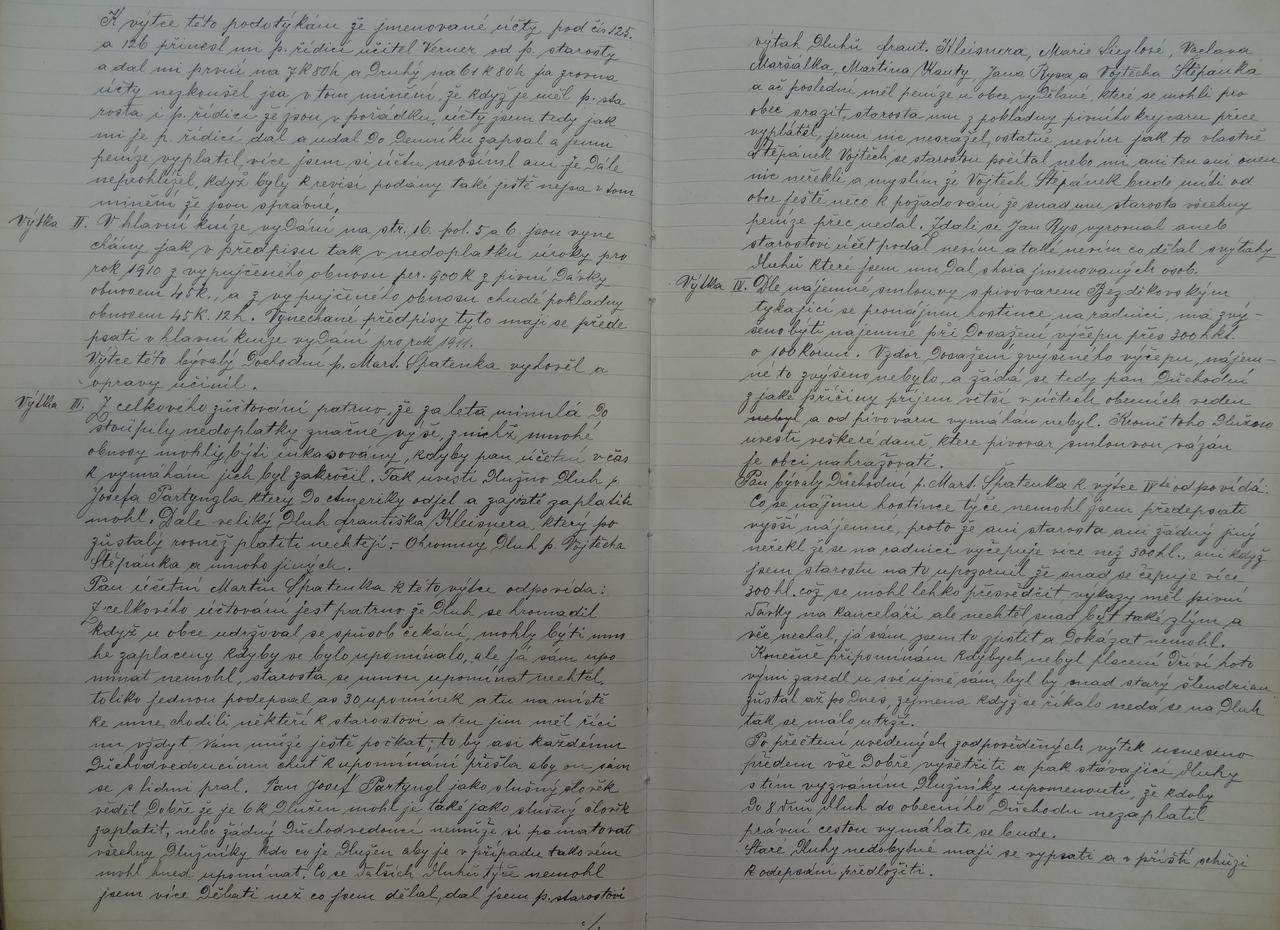 K výtce této podotýkám že jmenované účty pod čís 125.
a 126 přinesl mi p. řídící učitel Verner od p. starosty
a dal mi první na 7 K 80 h a Druhý na 61 K 80 h ja zrovna
účty nezkoušel jsa v tom mínění, že když je měl p. sta
rosta i p. řídící že jsou v pořádku, účty jsem tedy jak
mi je p. řídící dal a udal do Denníku zapsal a jemu
peníze vyplatil více jsem si účtu nevšiml ani je Dále
neprohlížel, když byly k revisi podány také ještě nejsa v tom
mínění že jsou správné.
Výtka II. V hlavní knize vydání na str. 16. pol. 5 a 6. jsou vyne
chány jak v předpisu tak v nedoplatku úroky pro
rok 1910 z vypujčeného obnosu per. 900 K z pivní Dávky
obnosem 45 K., a z vypujčeného obnosu chudé pokladny
obnosem 45 K. 12 h. Vynechané předpisy tyto mají se přede
psati v hlavní knize vydání pro rok 1911.
Výtce této bývalý Dochodní p. Mart. Špatenka vyhověl a
opravy učinil.
Výtka III. Z celkového zúčtování patrno, že za leta minulá Do
stoupily nedoplatky značné výše, z nichž mnohé
obnosy mohly býti inkasovány, kdyby pan účetní v čas
k vymáhání jich byl zakročil. Tak uvésti Dlužno Dluh p.
Josefa Partyngla který Do Ameriky odjel a zajisté zaplatit
mohl. Dále veliký Dluh Františka Kleisnera, který po
zůstalý rovněž platiti nechtějí. – Ohromný Dluh p. Vojtěcha
Štěpánka a mnoho jiných.
Pan účetní Martin Špatenka k této výtce odpovídá:
Z celkového účtování jest patrno že Dluh se hromadil
když u obce udržoval se spůsob čekání, mohly býti mno
hé zaplaceny kdyby se bylo upomínalo, ale já sám upo
mínat nemohl, starosta se mnou upomínat nechtěl,
toliko jednou podepsal as 30 upomínek a tu na místě
ke mne chodili někteří k starostovi a ten jim měl říci
nu vždyt Vám může ještě počkat; to by asi každému
Důchodvedoucímu chuť k upomínání přešla aby on sám
se s lidmi pral. Pan Josef Partyngl jako slušný člověk
věděl Dobře že je 6 K Dlužen mohl je také jako slušný člověk
zaplatit, nebo žádný Důchodvedoucí nemůže si pamatovat
všechny Dlužníky kdo co je Dlužen aby je v případu takovém
mohl hned upomínat. Co se Dalších Dluhů týče nemohl
jsem více Dělati než co jsem dělal, dal jsem p. starostovi
./.
výtah Dluhů Frant. Kleisnera, Marie Sieglové, Václava
Maršálka, Martina Kauty, Jana Rysa a Vojtěcha Štěpánka
a ač poslední měl peníze u obce vyDělané, které se mohli pro
obec srazit, starosta mu z pokladny pivního krejcaru přece
vyplátěl, jemu nic nesrážel, ostatně nevím jak to vlastně
Štěpánek Vojtěch se starostou počítal nebo mi ani ten ani onen
nic neřekli a myslím že Vojtěch Štěpánek bude míti od
obce ještě něco k požadování že snad mu starosta všechny
peníze přec nedal. Zdali se Jan Rys vyrovnal aneb
starostovi účet podal nevím a také nevím co dělal s výtahy
Dluhů které jsem mu Dal shora jmenovaných osob.
Výtka IV. Dle nájemné smlouvy s pivovarem Bezdíkovským
týkající se pronájmu hostince na radnici, má zvý-
šeno býti nájemné při Dosažení výčepu přes 300 hkt.
o 100 Korun. Vzdor Dosažení zvýšeného výčepu, nájem-
né to zvýšeno nebylo, a žádá se tedy pan Důchodní
z jaké příčiny příjem větší v účtech obecních veden
nebyl a od pivovaru vymáhán nebyl. Kromě toho Dlužno
uvésti veškeré daně, které pivovar smlouvou vázán
je obci nahražovati.
Pan bývalý Důchodní p. Mart. Špatenka k výtce IVte odpovídá:
Co se nájmu hostince týče nemohl jsem předepsati
vyšší nájemné, proto že ani starosta ani žádný jiný
neřekl že se na radnici vyčepuje více než 300 hl. ani když
jsem starostu na to upozornil že snad se čepuje více
300 hl. což se mohl lehko přesvědčit, výkazy měl pivní
Dávky na kanceláři ale nechtěl snad být také zlým a
věc nechal, já sám jsem to zjistit a Dokázat nemohl.
Konečně připomínám kdybych nebyl placení Dříví hoto
vými zavedl u své ujmě sám, byl by snad starý šlendrian
zůstal až po Dnes, zejmena když se říkalo nedá se na Dluh
tak se málo utrží.
Po přečtení uvedených zodpověděných výtek usneseno
předem vše Dobře vyšetřiti a pak stávající Dluhy
s tím vyzváním Dlužníky upomenouti, že kdoby
Do 8 dnů Dluh do obecního Důchodu nezaplatil
právní cestou vymáhati se bude.
Staré Dluhy nedobytné mají se vypsati a v příští schůzi
k odepsání předložiti.